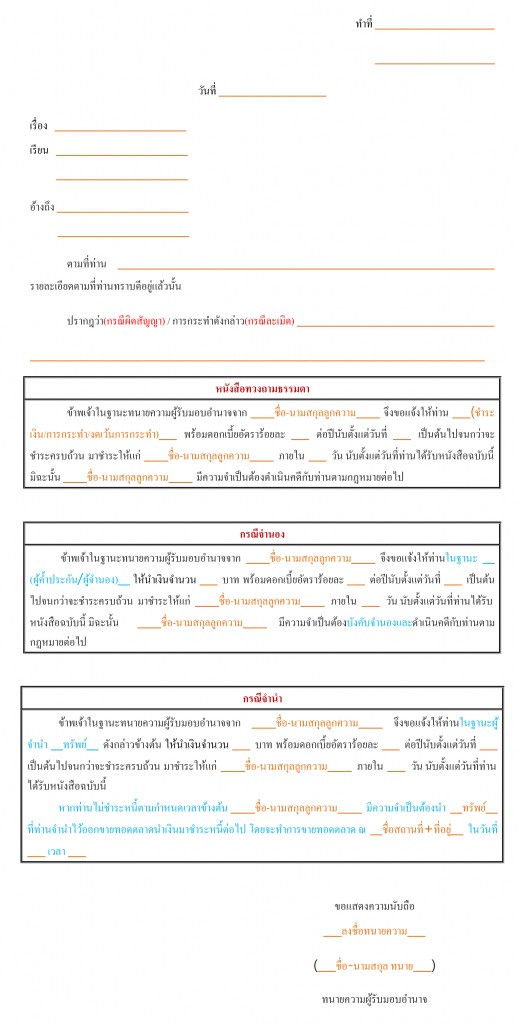 ทำที่ ____________________
____________________
วันที่ __________________
เรื่อง ______________________
เรียน ______________________
______________________
อ้างถึง ______________________
______________________
ตามที่ท่าน ____________________________________________________________
รายละเอียดตามที่ท่านทราบดีอยู่แล้วนั้น
ปรากฏว่า(กรณีผิดสัญญา) / การกระทำดังกล่าว(กรณีละเมิด) ________________________________
____________________________________________________________________________
หนังสือทวงถามธรรมดา
ข้าพเจ้าในฐานะทนายความผู้รับมอบอำนาจจาก ____ชื่อ-นามสกุลลูกความ____ จึงขอแจ้งให้ท่าน ___(ชำระ
เงิน/การกระทำ/งดเว้นการกระทำ)___ พร้อมดอกเบี้ยอัตราร้อยละ ___ ต่อปีนับตั้งแต่วันที่ ___ เป็นต้นไปจนกว่าจะ
ชำระครบถ้วน มาชำระให้แก่ ____ชื่อ-นามสกุลลูกความ____ ภายใน ___ วัน นับตั้งแต่วันที่ท่านได้รับหนังสือฉบับนี้
มิฉะนั้น ____ชื่อ-นามสกุลลูกความ____ มีความจำเป็นต้องดำเนินคดีกับท่านตามกฎหมายต่อไป
กรณีจำนอง
ข้าพเจ้าในฐานะทนายความผู้รับมอบอำนาจจาก ____ชื่อ-นามสกุลลูกความ____ จึงขอแจ้งให้ท่านในฐานะ __
(ผู้ค้ำประกัน/ผู้จำนอง)__ ให้นำเงินจำนวน ___ บาท พร้อมดอกเบี้ยอัตราร้อยละ ___ ต่อปีนับตั้งแต่วันที่ ___ เป็นต้น
ไปจนกว่าจะชำระครบถ้วน มาชำระให้แก่ ____ชื่อ-นามสกุลลูกความ____ ภายใน ___ วัน นับตั้งแต่วันที่ท่านได้รับ
หนังสือฉบับนี้ มิฉะนั้น ____ชื่อ-นามสกุลลูกความ____ มีความจำเป็นต้องบังคับจำนองและดำเนินคดีกับท่านตาม
กฎหมายต่อไป
กรณีจำนำ
ข้าพเจ้าในฐานะทนายความผู้รับมอบอำนาจจาก ____ชื่อ-นามสกุลลูกความ____ จึงขอแจ้งให้ท่านในฐานะผู้
จำนำ __ทรัพย์__ ดังกล่าวข้างต้น ให้นำเงินจำนวน ___ บาท พร้อมดอกเบี้ยอัตราร้อยละ ___ ต่อปีนับตั้งแต่วันที่ ___
เป็นต้นไปจนกว่าจะชำระครบถ้วน มาชำระให้แก่ ____ชื่อ-นามสกุลลูกความ____ ภายใน ___ วัน นับตั้งแต่วันที่ท่าน
ได้รับหนังสือฉบับนี้
หากท่านไม่ชำระหนี้ตามกำหนดเวลาข้างต้น ____ชื่อ-นามสกุลลูกความ____ มีความจำเป็นต้องนำ __ทรัพย์__
ที่ท่านจำนำไว้ออกขายทอดตลาดนำเงินมาชำระหนี้ต่อไป โดยจะทำการขายทอดตลาด ณ __ชื่อสถานที่+ที่อยู่__ ในวันที่
___ เวลา ___
ขอแสดงความนับถือ
___ลงชื่อทนายความ___
(___ชื่อ-นามสกุล ทนาย___)
ทนายความผู้รับมอบอำนาจ